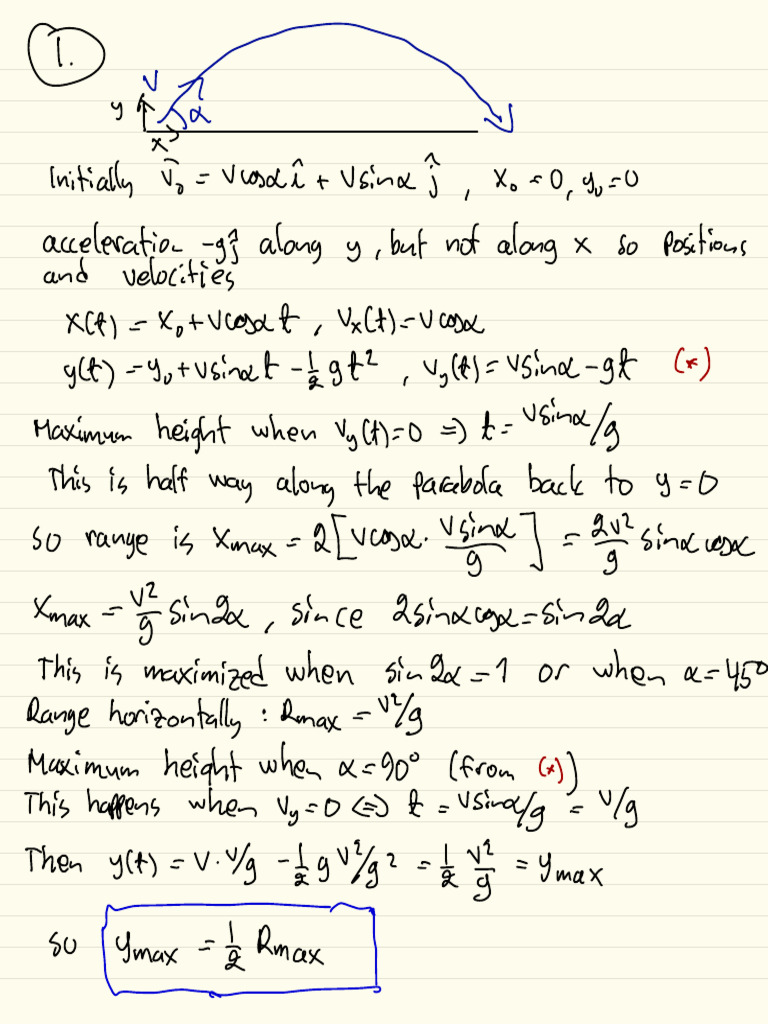 1.
V
y
α
x
Initially v⃗₀ = V cosα î + V sinα ĵ , x₀ = 0, y₀ = 0
acceleration -gĵ along y, but not along x so positions
and velocities
x(t) = x₀ + V cosα t , Vₓ(t) = V cosα
y(t) = y₀ + V sinα t - ½ g t² , V_y(t) = V sinα - gt (*)
Maximum height when V_y(t) = 0 ⇒ t = V sinα/g
This is half way along the parabola back to y = 0
so range is X_max = 2[V cosα · V sinα / g] = 2V²/g sinα cosα
X_max = V²/g sin2α , since 2 sinα cosα = sin2α
This is maximized when sin2α = 1 or when α = 45°
Range horizontally : R_max = V²/g
Maximum height when α = 90° (from (*))
This happens when V_y = 0 ⇔ t = V sinα/g = V/g
Then y(t) = V · V/g - ½ g V²/g² = ½ V²/g = y_max
so y_max = ½ R_max